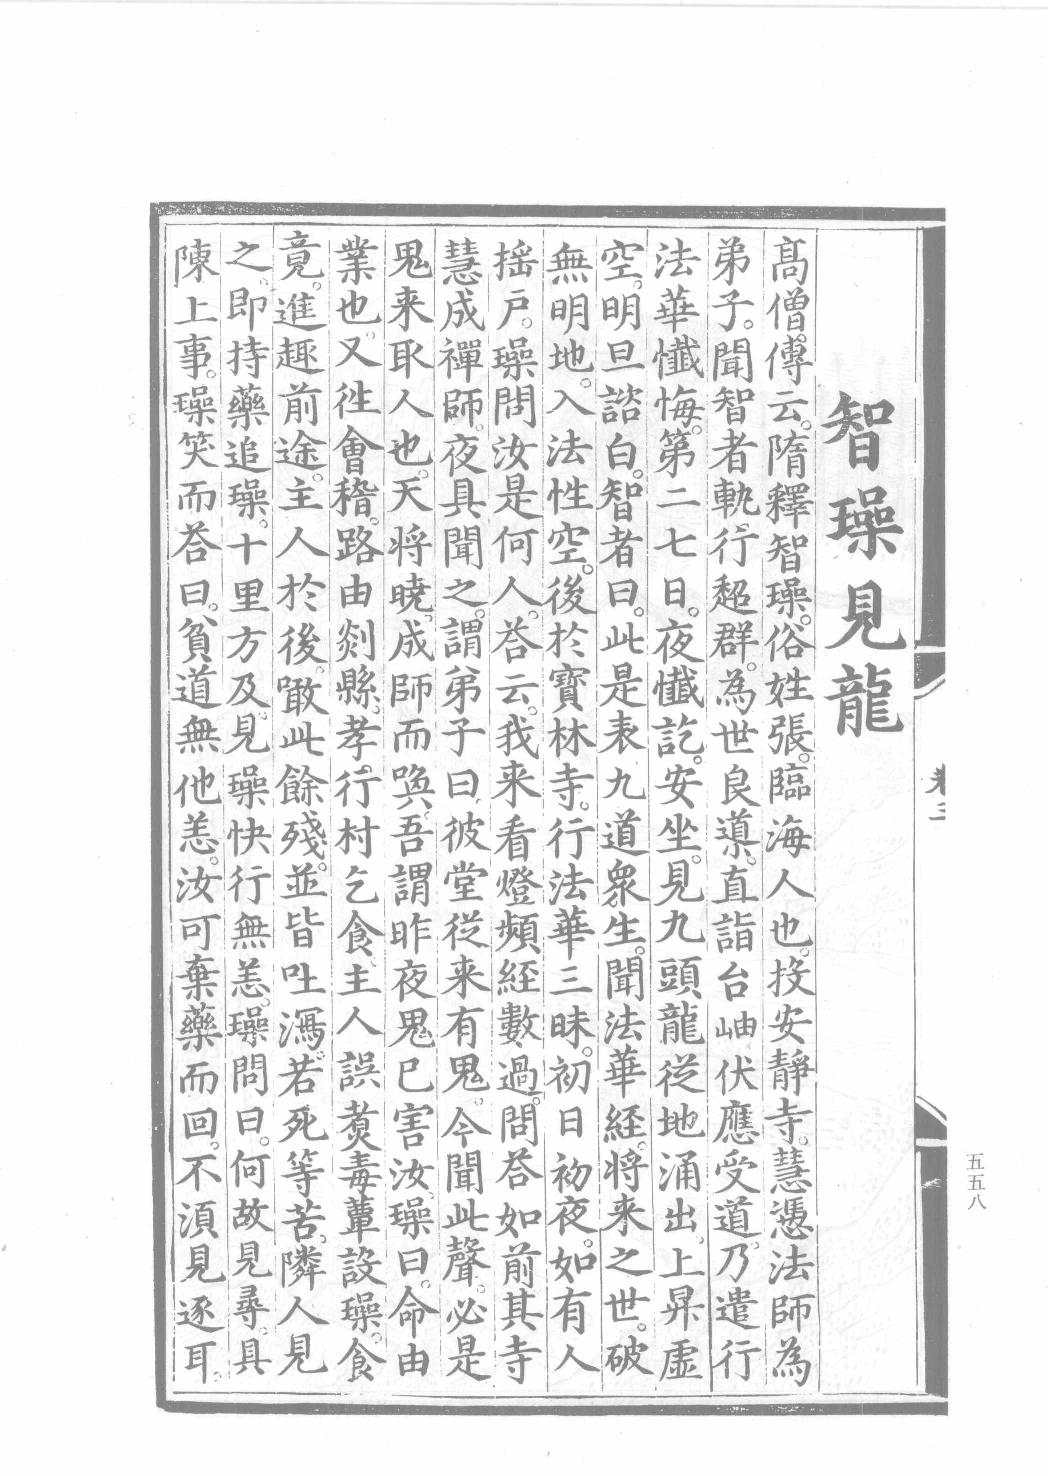 智璪見龍
高僧傳云。隋釋智璪。俗姓張。臨海人也。投安靜寺。慧憑法師為
弟子。聞智者軌行超群。為世良導。直詣台岫伏應受道。乃遣行
法華懺悔。第二七日。夜懺訖。安坐。見九頭龍從地涌出。上昇虛
空。明旦諮白。智者曰。此是表九道眾生。聞法華經。將來之世。破
無明地。入法性空。後於寶林寺。行法華三昧。初日初夜。如有人
搖戶。璪問汝是何人。荅云。我来看燈頻經數過。問荅如前其寺
慧成禪師。夜具聞之。謂弟子曰。彼堂從来有鬼。今聞此聲。必是
鬼来取人也。天將曉。成師而喚。吾謂昨夜鬼已害汝。璪曰。命由
業也。又往會稽。路由剡縣。孝行村乞食主人誤煑毒蕈設璪。食
竟。進趣前途。主人於後。噉此餘殘。並皆吐瀉。若死等苦。隣人見
之。即持藥追璪。十里方及。見璪快行無恙。璪問曰。何故見尋。具
陳上事。璪笑而荅曰。貧道無他恙。汝可棄藥而回。不須見逐耳。
卷三
五五八